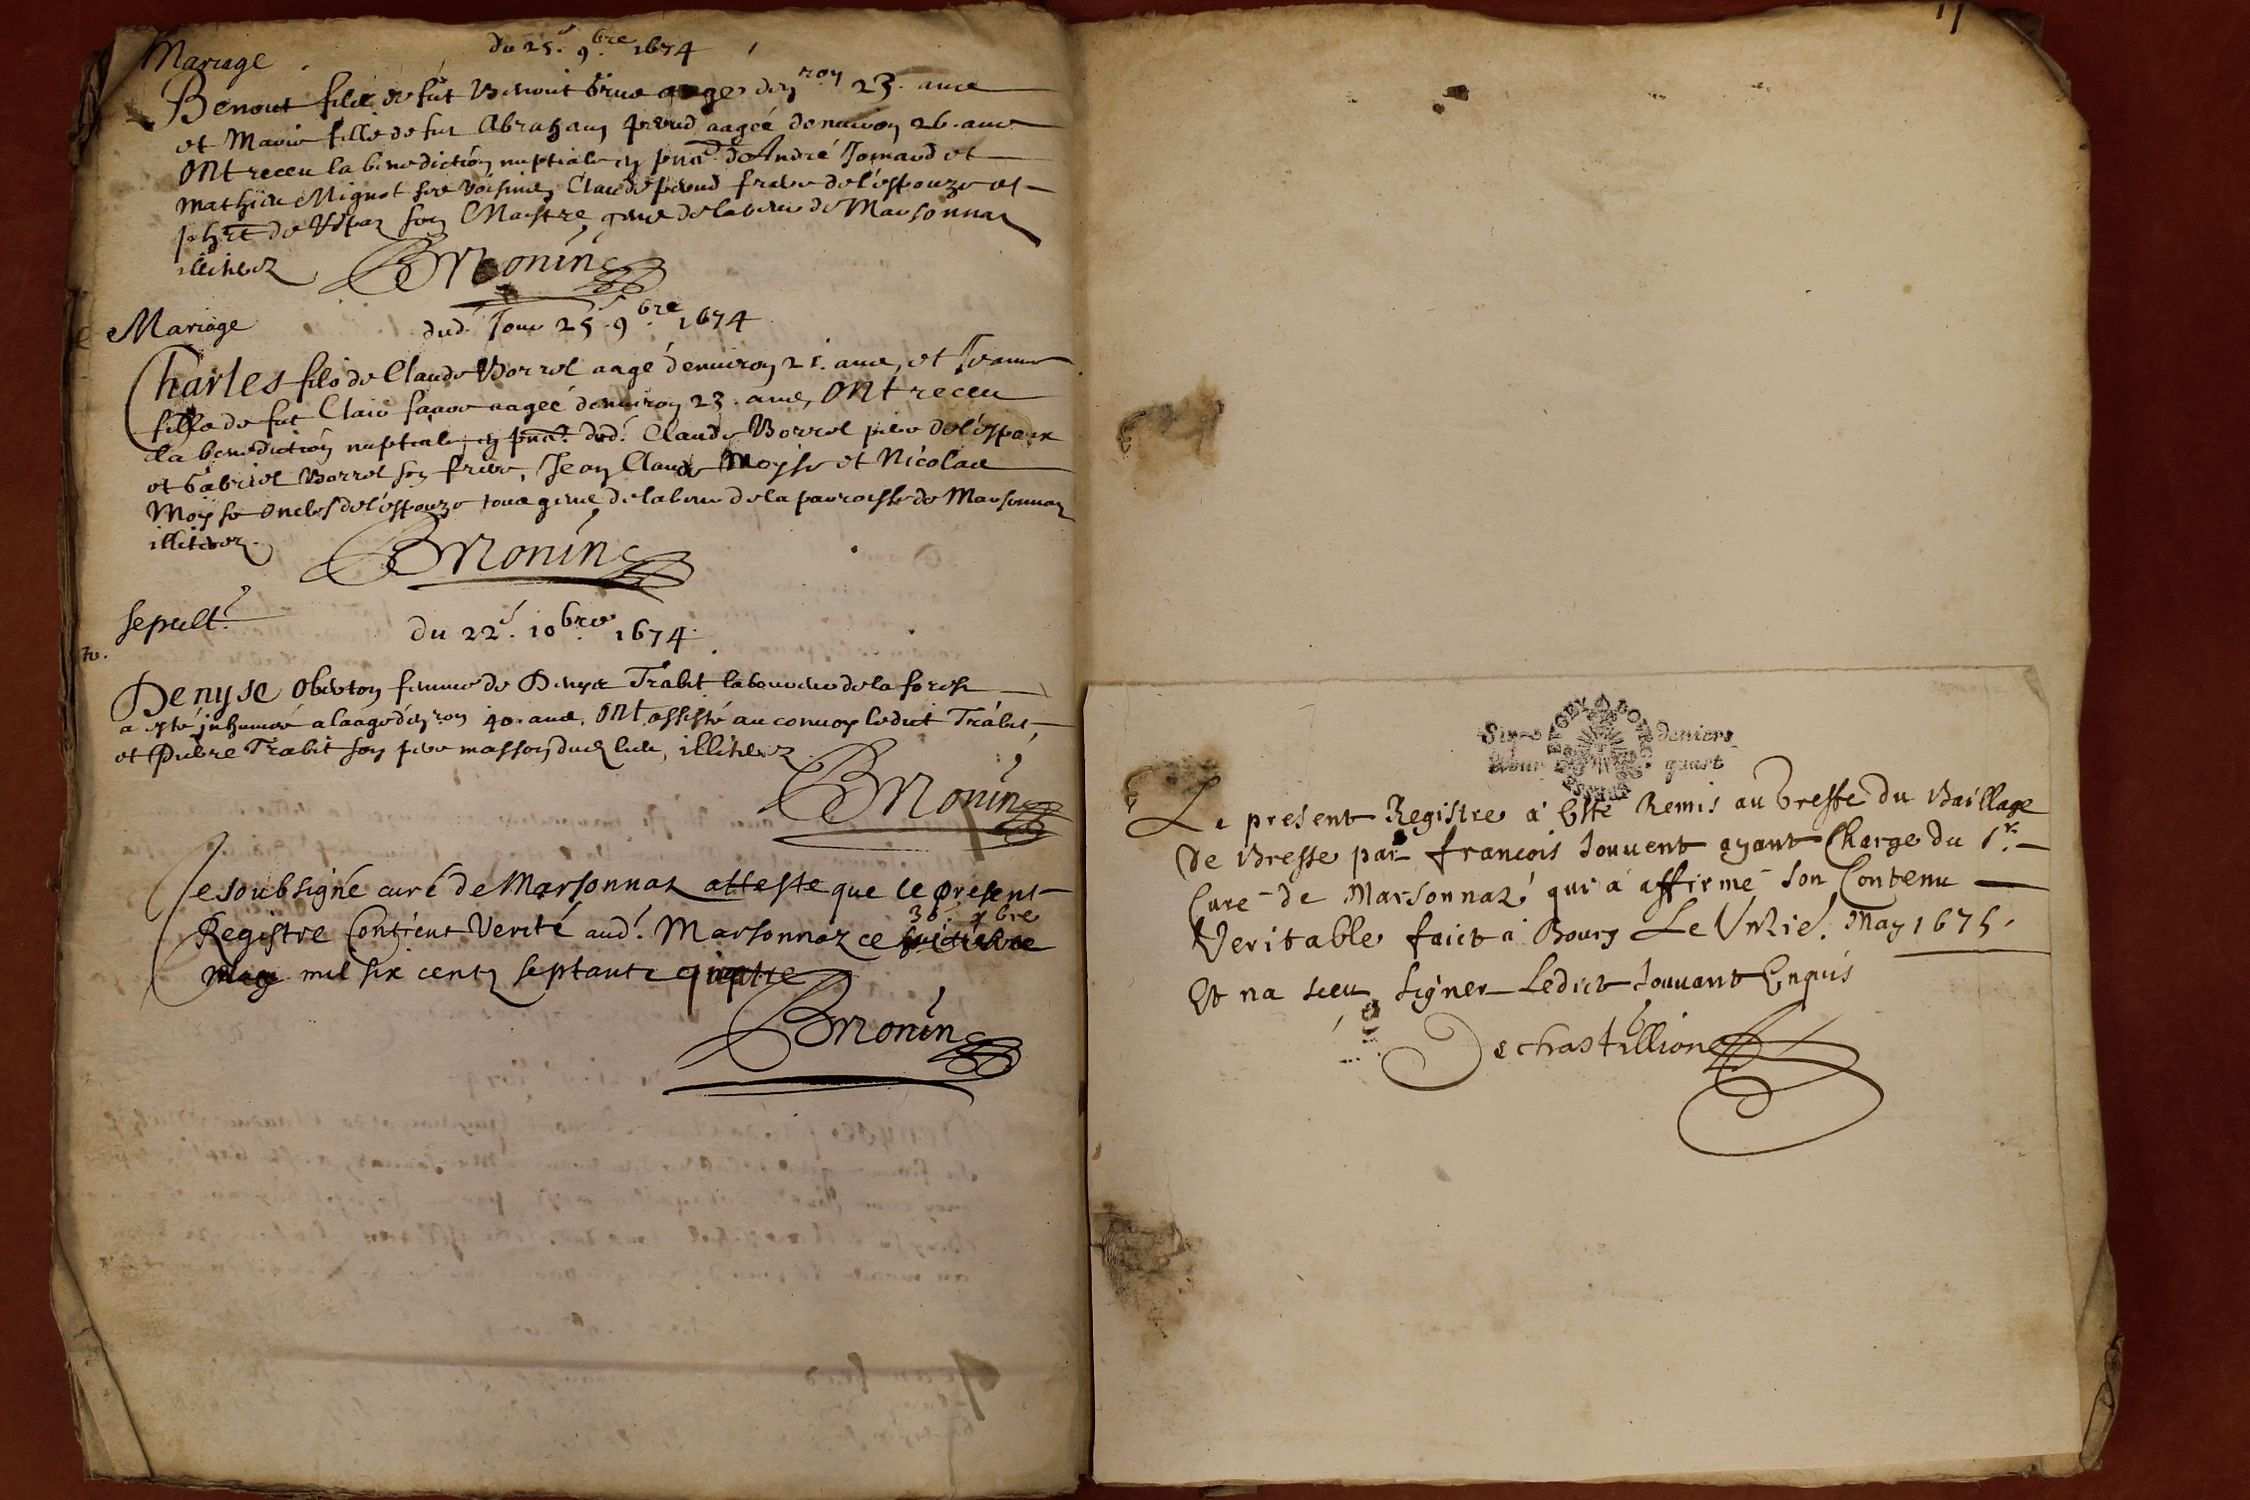 Mariage
du 25.e 9.bre 1674
Benout filz de fut Benoit Brun aagé d'en.ron 23. ans
et Marie fille de fut Abraham aagée d'environ 26. ans
ont receu la benediction nuptiale en pnce de André et
Mathieu Mignot ses voisins, Claude frere de l'espouze et
son Maistre gens de labeur de Marsonnaz
illiterez BMonin
Mariage
dud. Jour 25. 9.bre 1674
Charles filz de Claude Borrel aagé d'environ 21. ans, et Jeanne
fille de fut Claude aagée d'environ 23. ans, ont receu
la benediction nuptiale en pnce dud. Claude Borrel pere de l'espoux
et Gabriel Borrel son frere, Jean Claude Moyse et Nicolas
Moyse oncles de l'espouze tous gens de labeur de la parroisse de Marsonnaz
illiterez.
BMonin
Sepult.e
du 22.e 10.bre 1674.
Denyse femme de Denys Trabit laboureur de la forest
a esté inhumée a l'aage d'en.ron 40. ans. ont assisté au convoy ledict Trabit,
et Pierre Trabit son pere masson dud. lieu, illiterez
BMonin
Je soubsigné curé de Marsonnaz atteste que le present
Registre contient verité aud. Marsonnaz ce
mil six centz septante quattre
BMonin
17
Six deniers
quart
Le present Registre a esté Remis au Greffe du Baillage
de Bresse par francois Jouvent ayant Charge du Sr.
Curé de Marsonnaz qui a affirmé son Contenu
Veritable faict a Bourg Le May 1675
Et na sceu signer Ledict Jouvant Enquis
Dechastillion